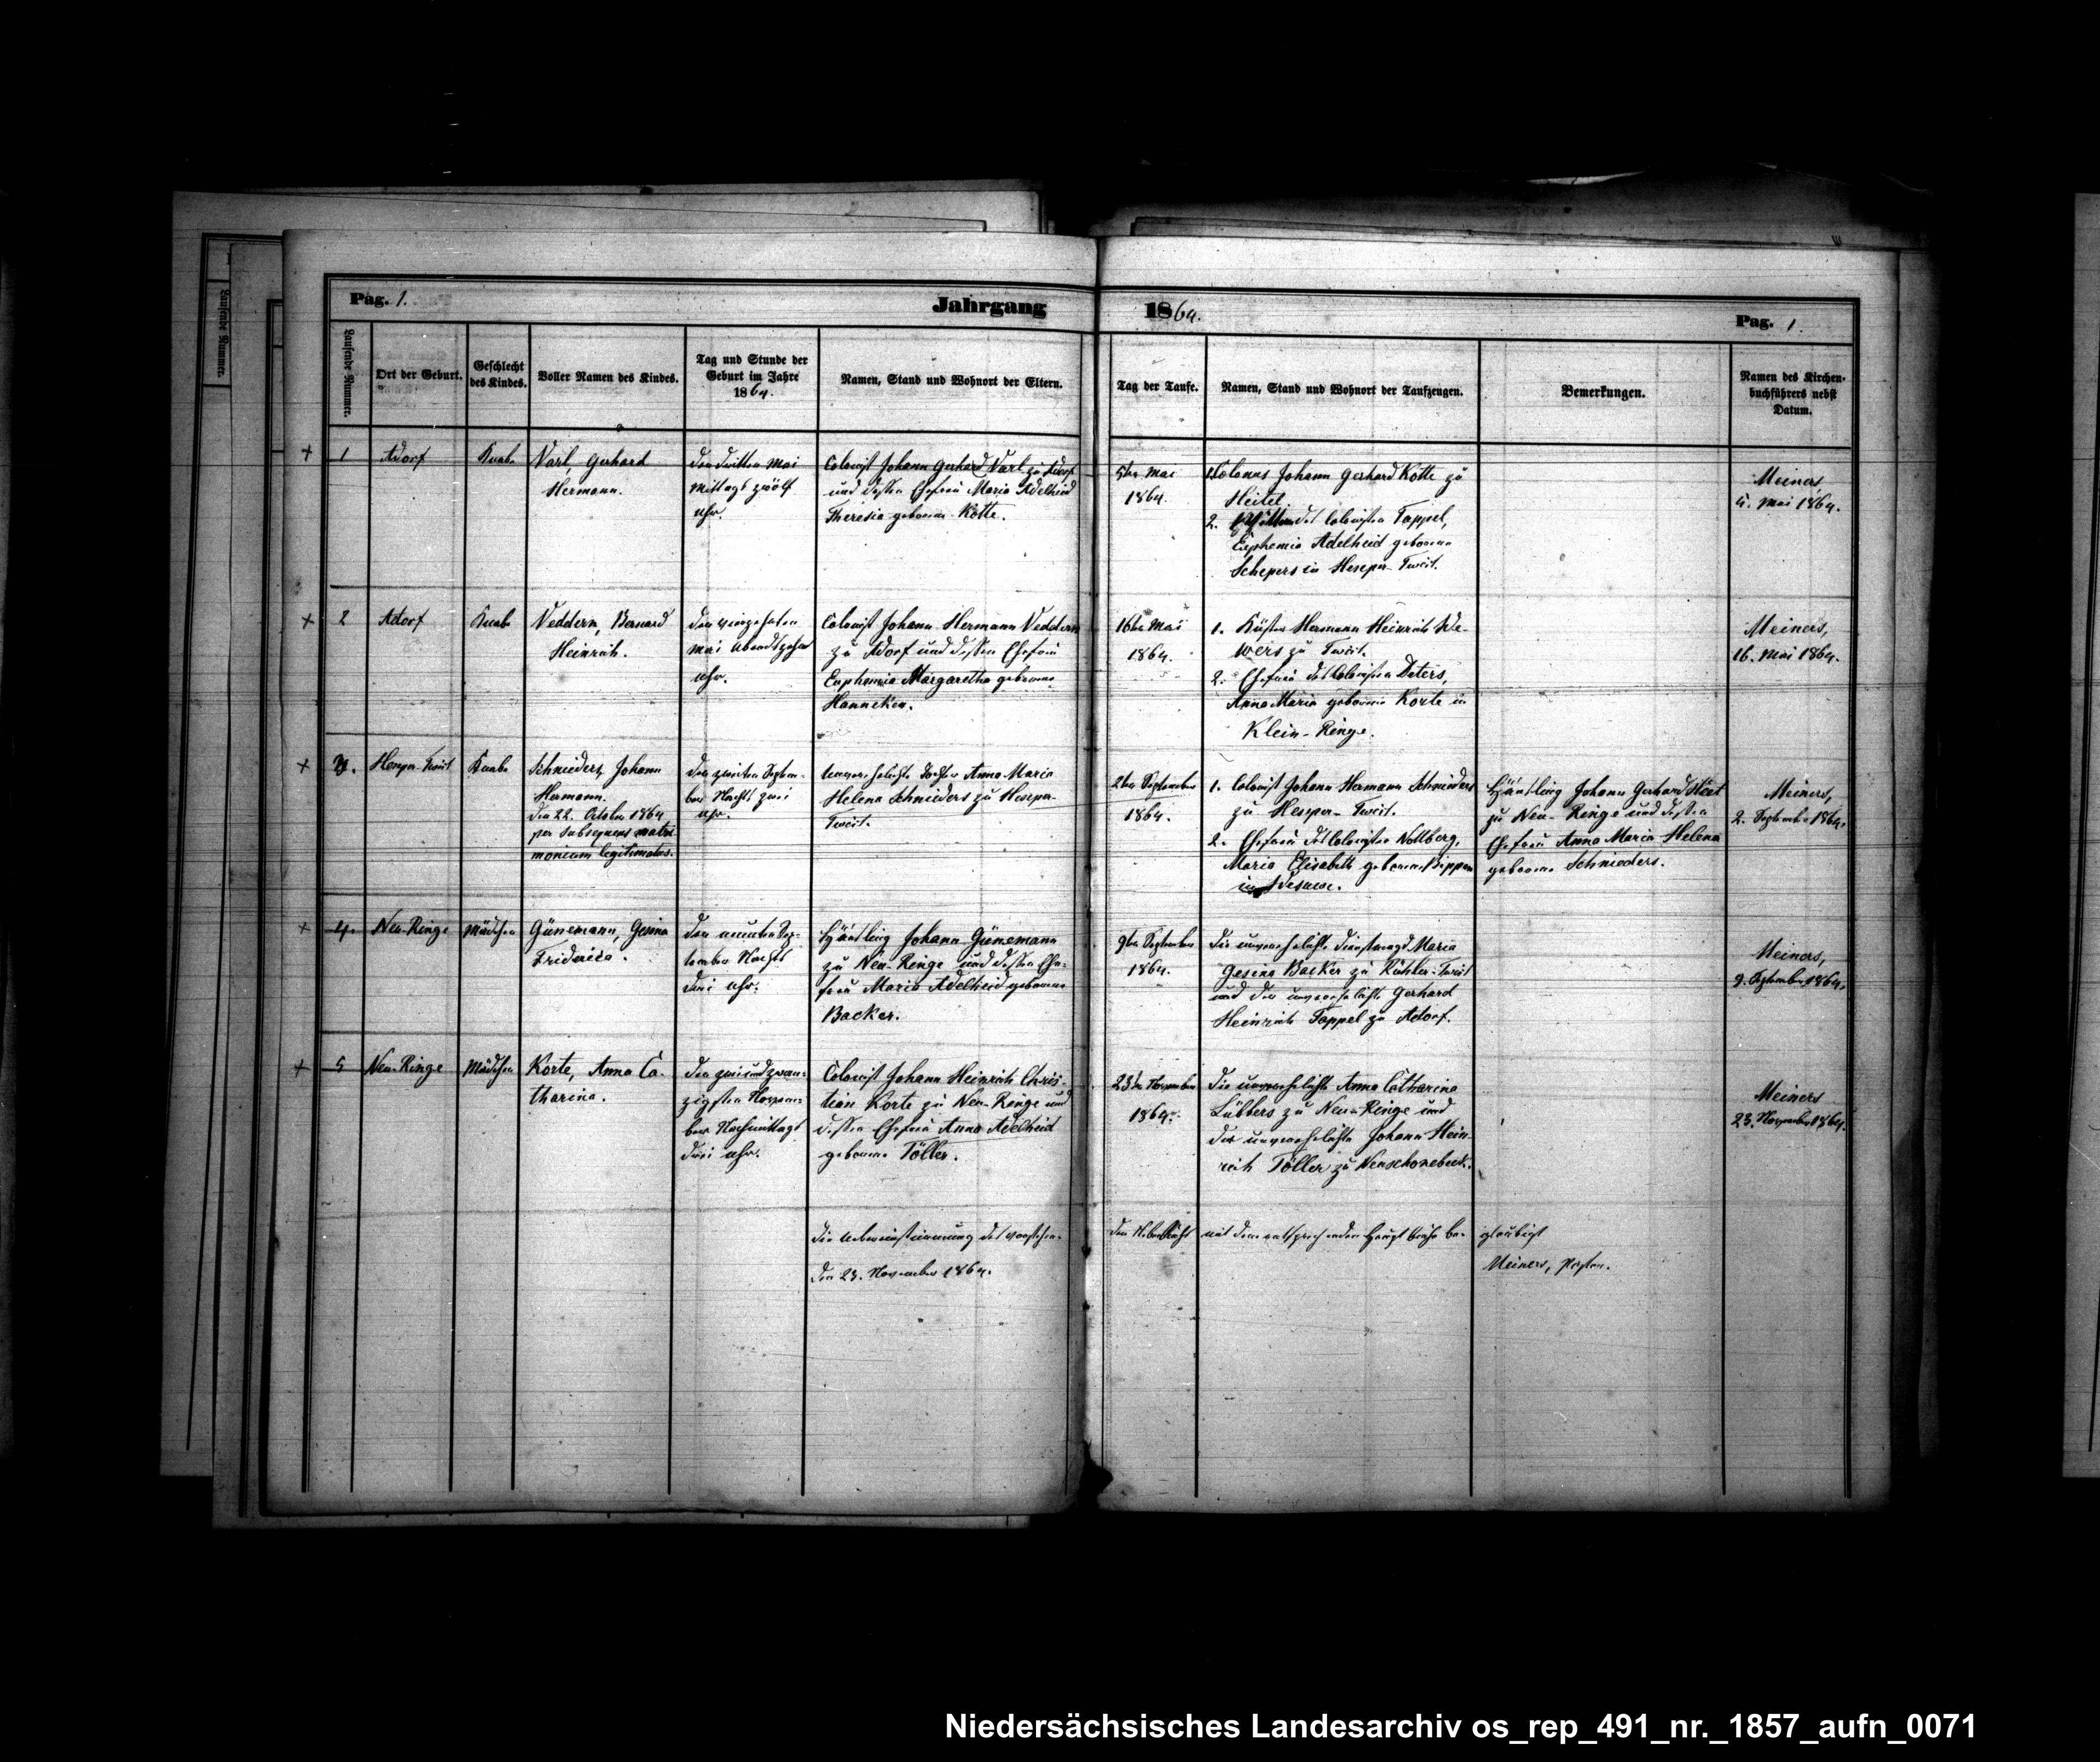 Pag. 1.
Jahrgang 1864.
Pag. 1.
Laufende Nummer.
Laufende Nummer.
Ort der Geburt.
Geschlecht
des Kindes.
Voller Namen des Kindes.
Tag und Stunde der
Geburt im Jahre
1864.
Namen, Stand und Wohnort der Eltern.
Tag der Taufe.
Namen, Stand und Wohnort der Taufzeugen.
Bemerkungen.
Namen des Kirchen-
buchführers nebst
Datum.
+ 1
Adorf
Knabe
Varl, Gerhard
Hermann.
den dritten Mai
Mittags zwölf
Uhr.
Colonist Johann Gerhard Varl zu Adorf
und dessen Ehefrau Maria Adelheid
Theresia geborene Kotte.
5ten Mai
1864.
1. Colonus Johann Gerhard Kotte zu
2. des Colonisten Tappel,
Euphemia Adelheid geborene
Schepers in Heseper-Twist.
Meiners,
5. Mai 1864.
+ 2
Adorf
Knabe
Veddern, Bernard
Heinrich.
den vierzehnten
Mai Abends zehn
Uhr.
Colonist Johann Hermann Veddern
zu Adorf und dessen Ehefrau
Euphemia Margaretha geborene
Hanneken.
16ten Mai
1864.
1. Küster Hermann Heinrich We-
wers zu Twist.
2. Ehefrau des Colonisten Deters,
Anna Maria geborene Korte in
Klein-Ringe.
Meiners,
16. Mai 1864.
+ 3.
Heseper-Twist
Knabe
Schnieders, Johann
Hermann.
den 22. October 1864
per subsequens matri-
monium legitimatus.
den zweiten Septem-
ber Nachts zwei
Uhr.
Unverehelichte Tochter Anna Maria
Helena Schnieders zu Heseper-
Twist.
2ten September
1864.
1. Colonist Johann Hermann Schnieders
zu Heseper-Twist.
2. Ehefrau des Colonisten
Maria Elisabeth geborene
in Wesuwe.
Häusling Johann Gerhard
zu Neu-Ringe und dessen
Ehefrau Anna Maria Helena
geborene Schnieders.
Meiners,
2. September 1864.
+ 4.
Neu-Ringe
Mädchen
Günemann, Gesina
Friderica.
den neunten Sep-
tember Nachts
drei Uhr.
Häusling Johann Günemann
zu Neu-Ringe und dessen Ehe-
frau Maria Adelheid geborene
Backer.
9ten September
1864.
Die unverehelichte Dienstmagd Maria
Gesina Backer zu Rühler-Twist
und der unverehelichte Gerhard
Heinrich Tappel zu Adorf.
Meiners,
9. September 1864.
+ 5
Neu-Ringe
Mädchen
Korte, Anna Ca-
tharina.
den zweiundzwan-
zigsten Novem-
ber Nachmittags
drei Uhr.
Colonist Johann Heinrich Chris-
tian Korte zu Neu-Ringe und
dessen Ehefrau Anna Adelheid
geborene Töller.
23ten November
1864.
Die unverehelichte Anna Catharina
Lübbers zu Neu-Ringe und
der unverehelichte Johann Hein-
rich Töller zu Neuschonebeek.
Meiners
23. November 1864.
Die Uebereinstimmung des vorstehen-
den mit dem entsprechenden Hauptbuche be-
glaubigt
den 23. November 1864.
Meiners, Pastor.
Niedersächsisches Landesarchiv os_rep_491_nr._1857_aufn_0071